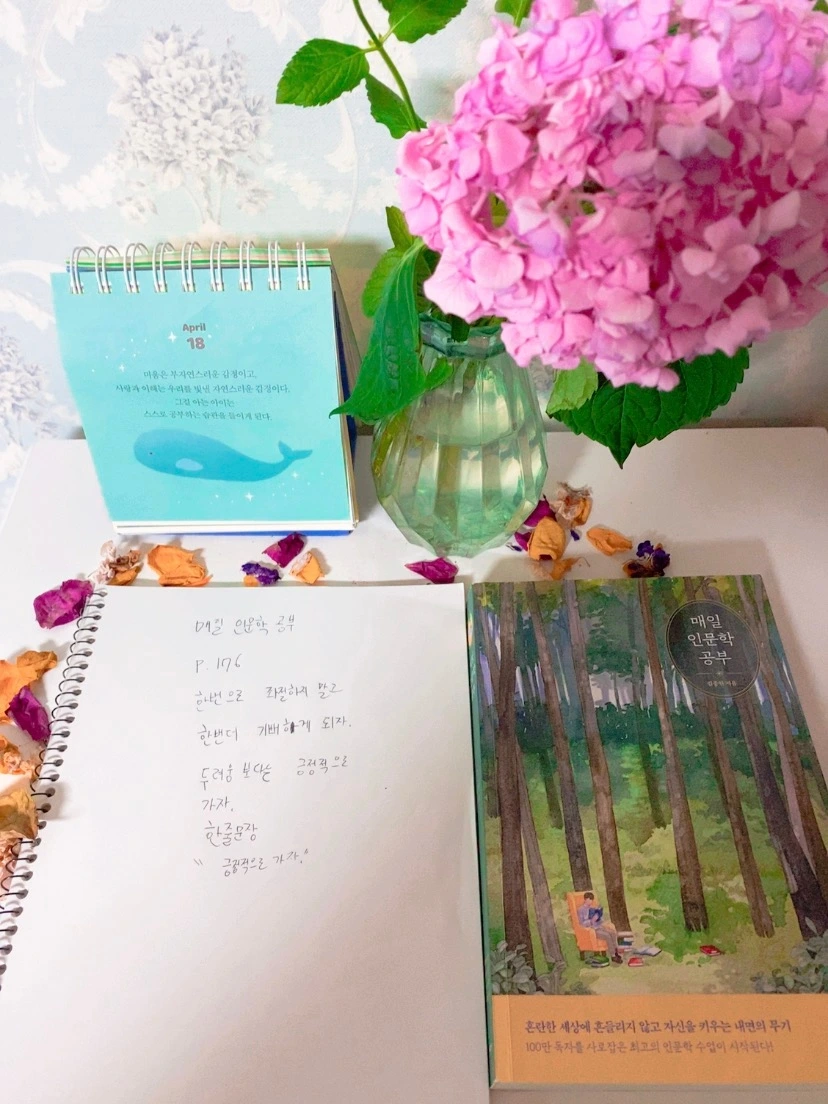 April
18
미움은 부자연스러운 감정이고,
사랑과 이해는 우리를 빛낼 자연스러운 감정이다.
그걸 아는 아이는
스스로 공부하는 습관을 들이게 된다.
매일 인문학 공부
P. 176
한번으로 좌절하지 말고
한번더 기배하게 되자.
두려움 보다는 긍정적으로
가자.
한줄문장
"긍정적으로 가자."
매일
인문학
공부
김종원 지음
혼란한 세상에 흔들리지 않고 자신을 키우는 내면의 무기
100만 독자를 사로잡은 최고의 인문학 수업이 시작된다!